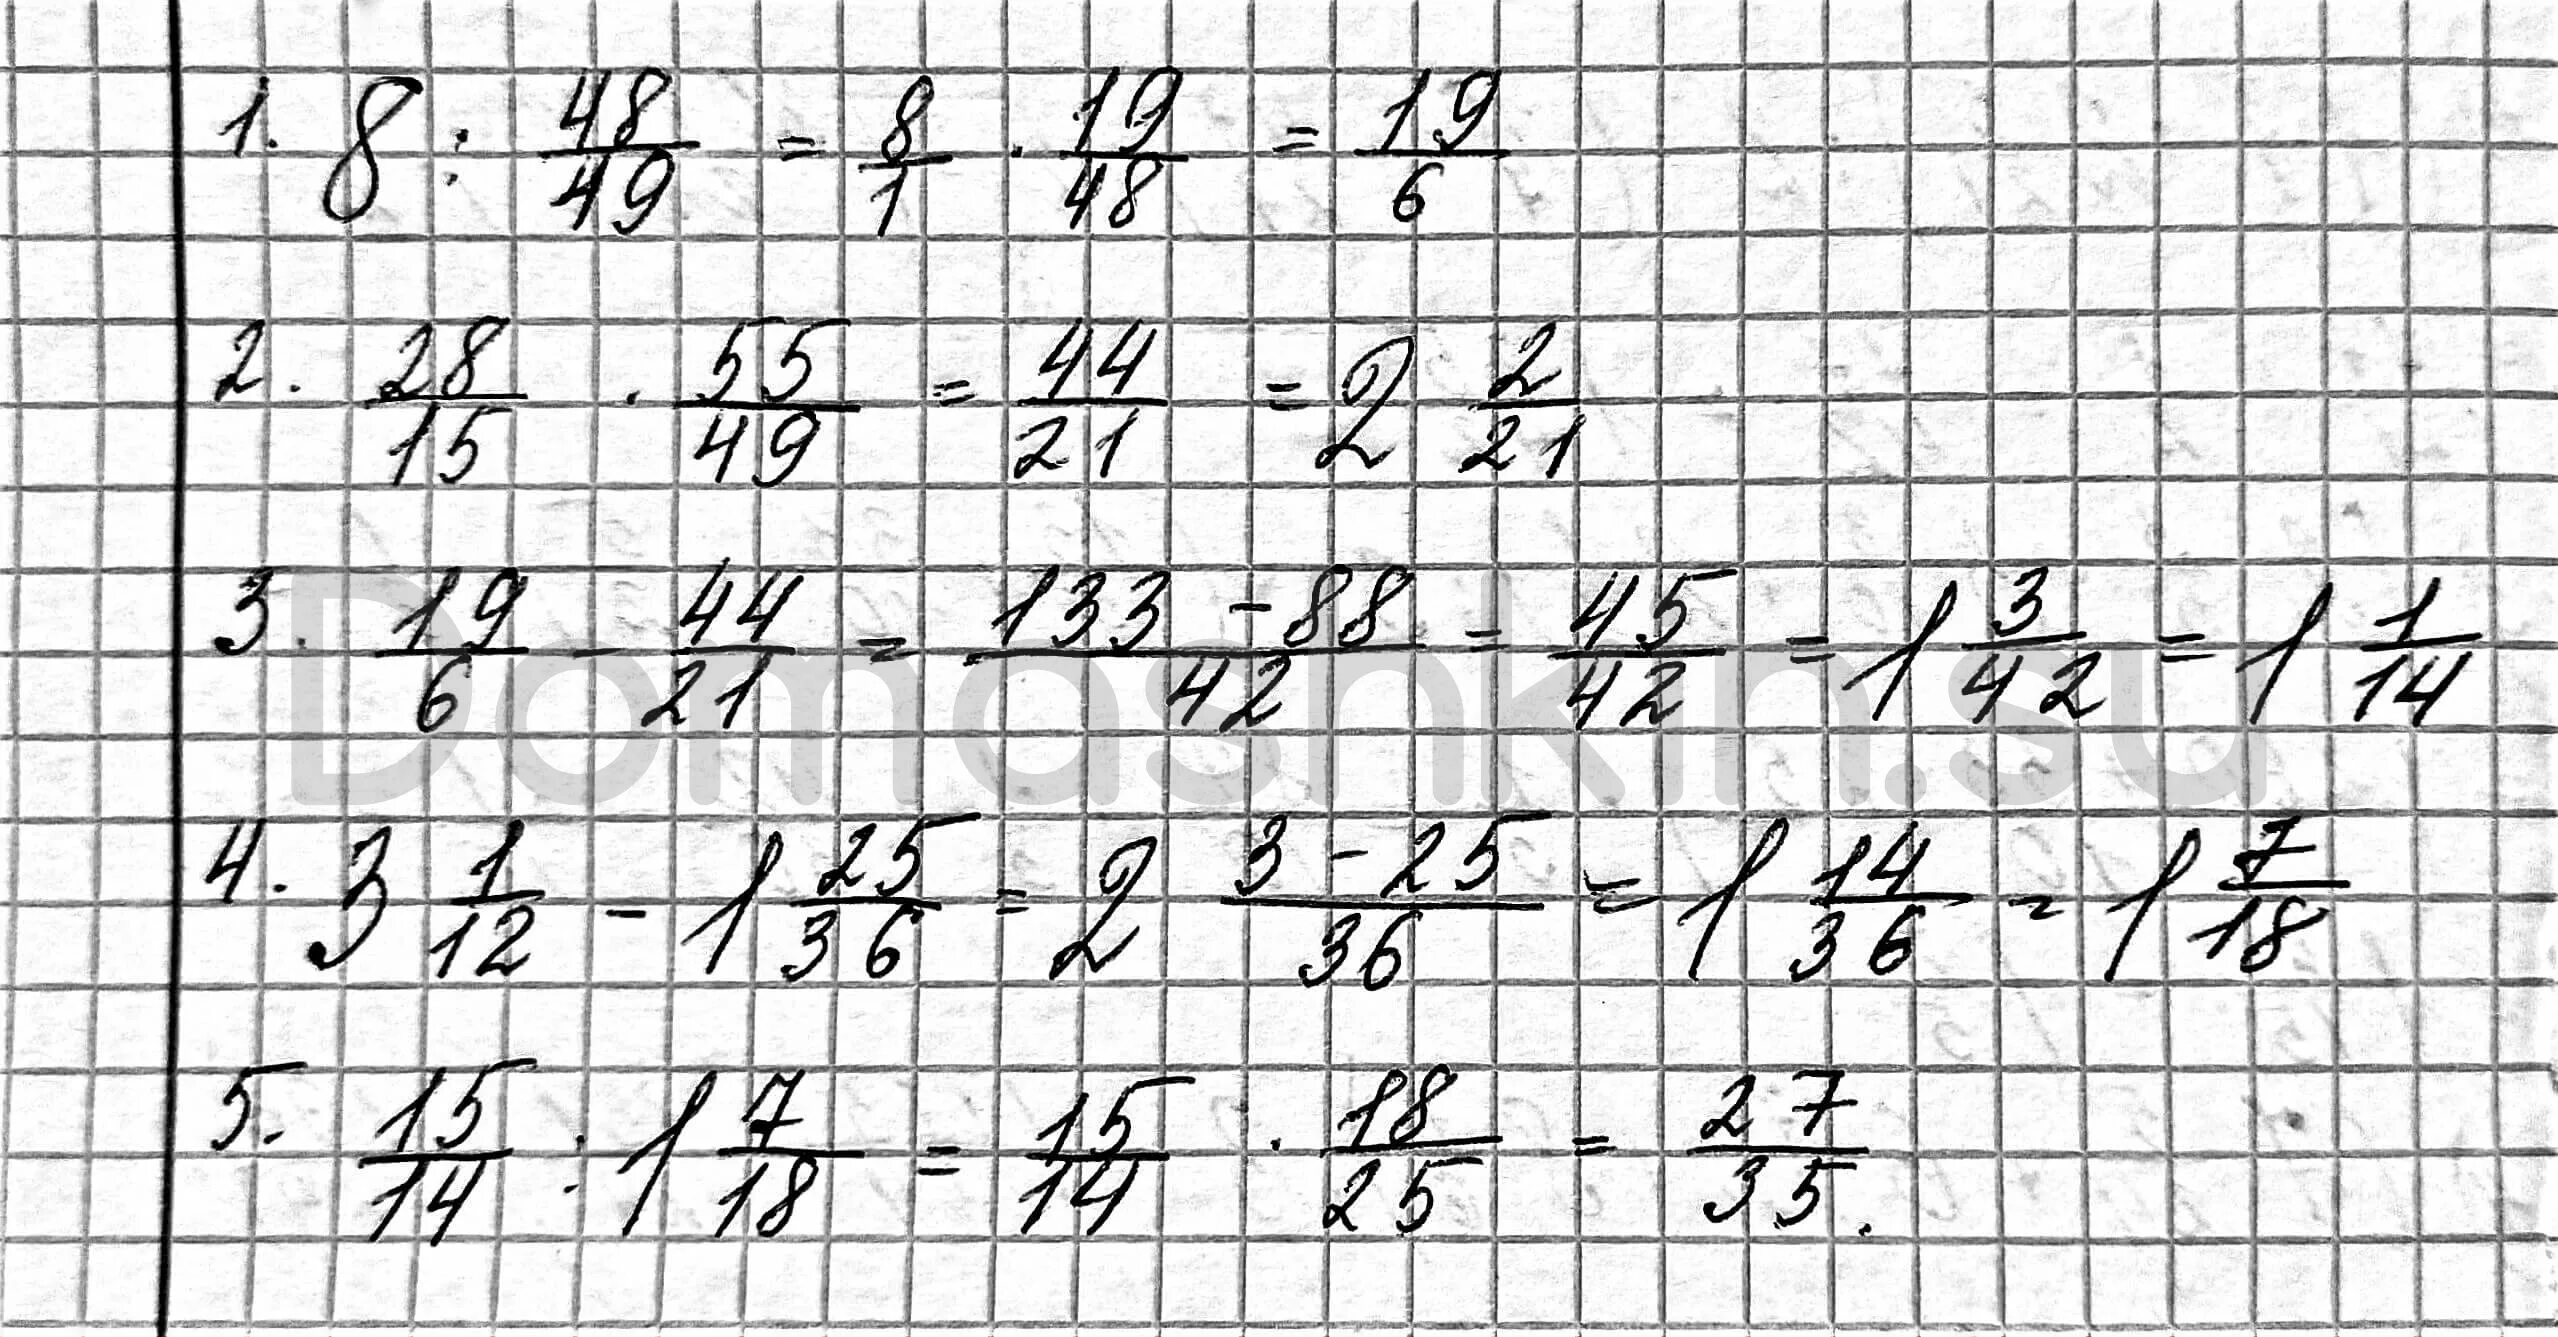 1. 8 : 48/49 = 8/1 · 19/48 = 19/6
2. 28/15 · 55/49 = 44/21 = 2 2/21
3. 19/6 - 44/21 = 133-88/42 = 45/42 = 1 3/42 = 1 1/14
4. 3 1/12 - 1 25/36 = 2 3-25/36 = 1 14/36 = 1 7/18
5. 15/14 : 1 7/18 = 15/14 · 18/25 = 27/35.
Domashkin.su